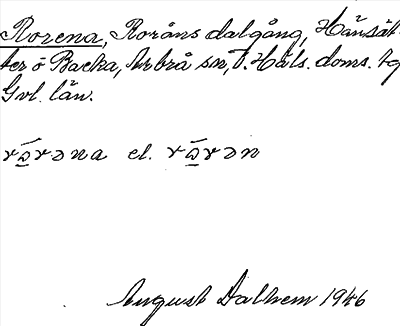 Rorena, Roråns dalgång, Hänsät-
ter o Backa, Arbrå sn, V. Häls. doms. tg
Gvl. län.
el.
August Dalhem 1946